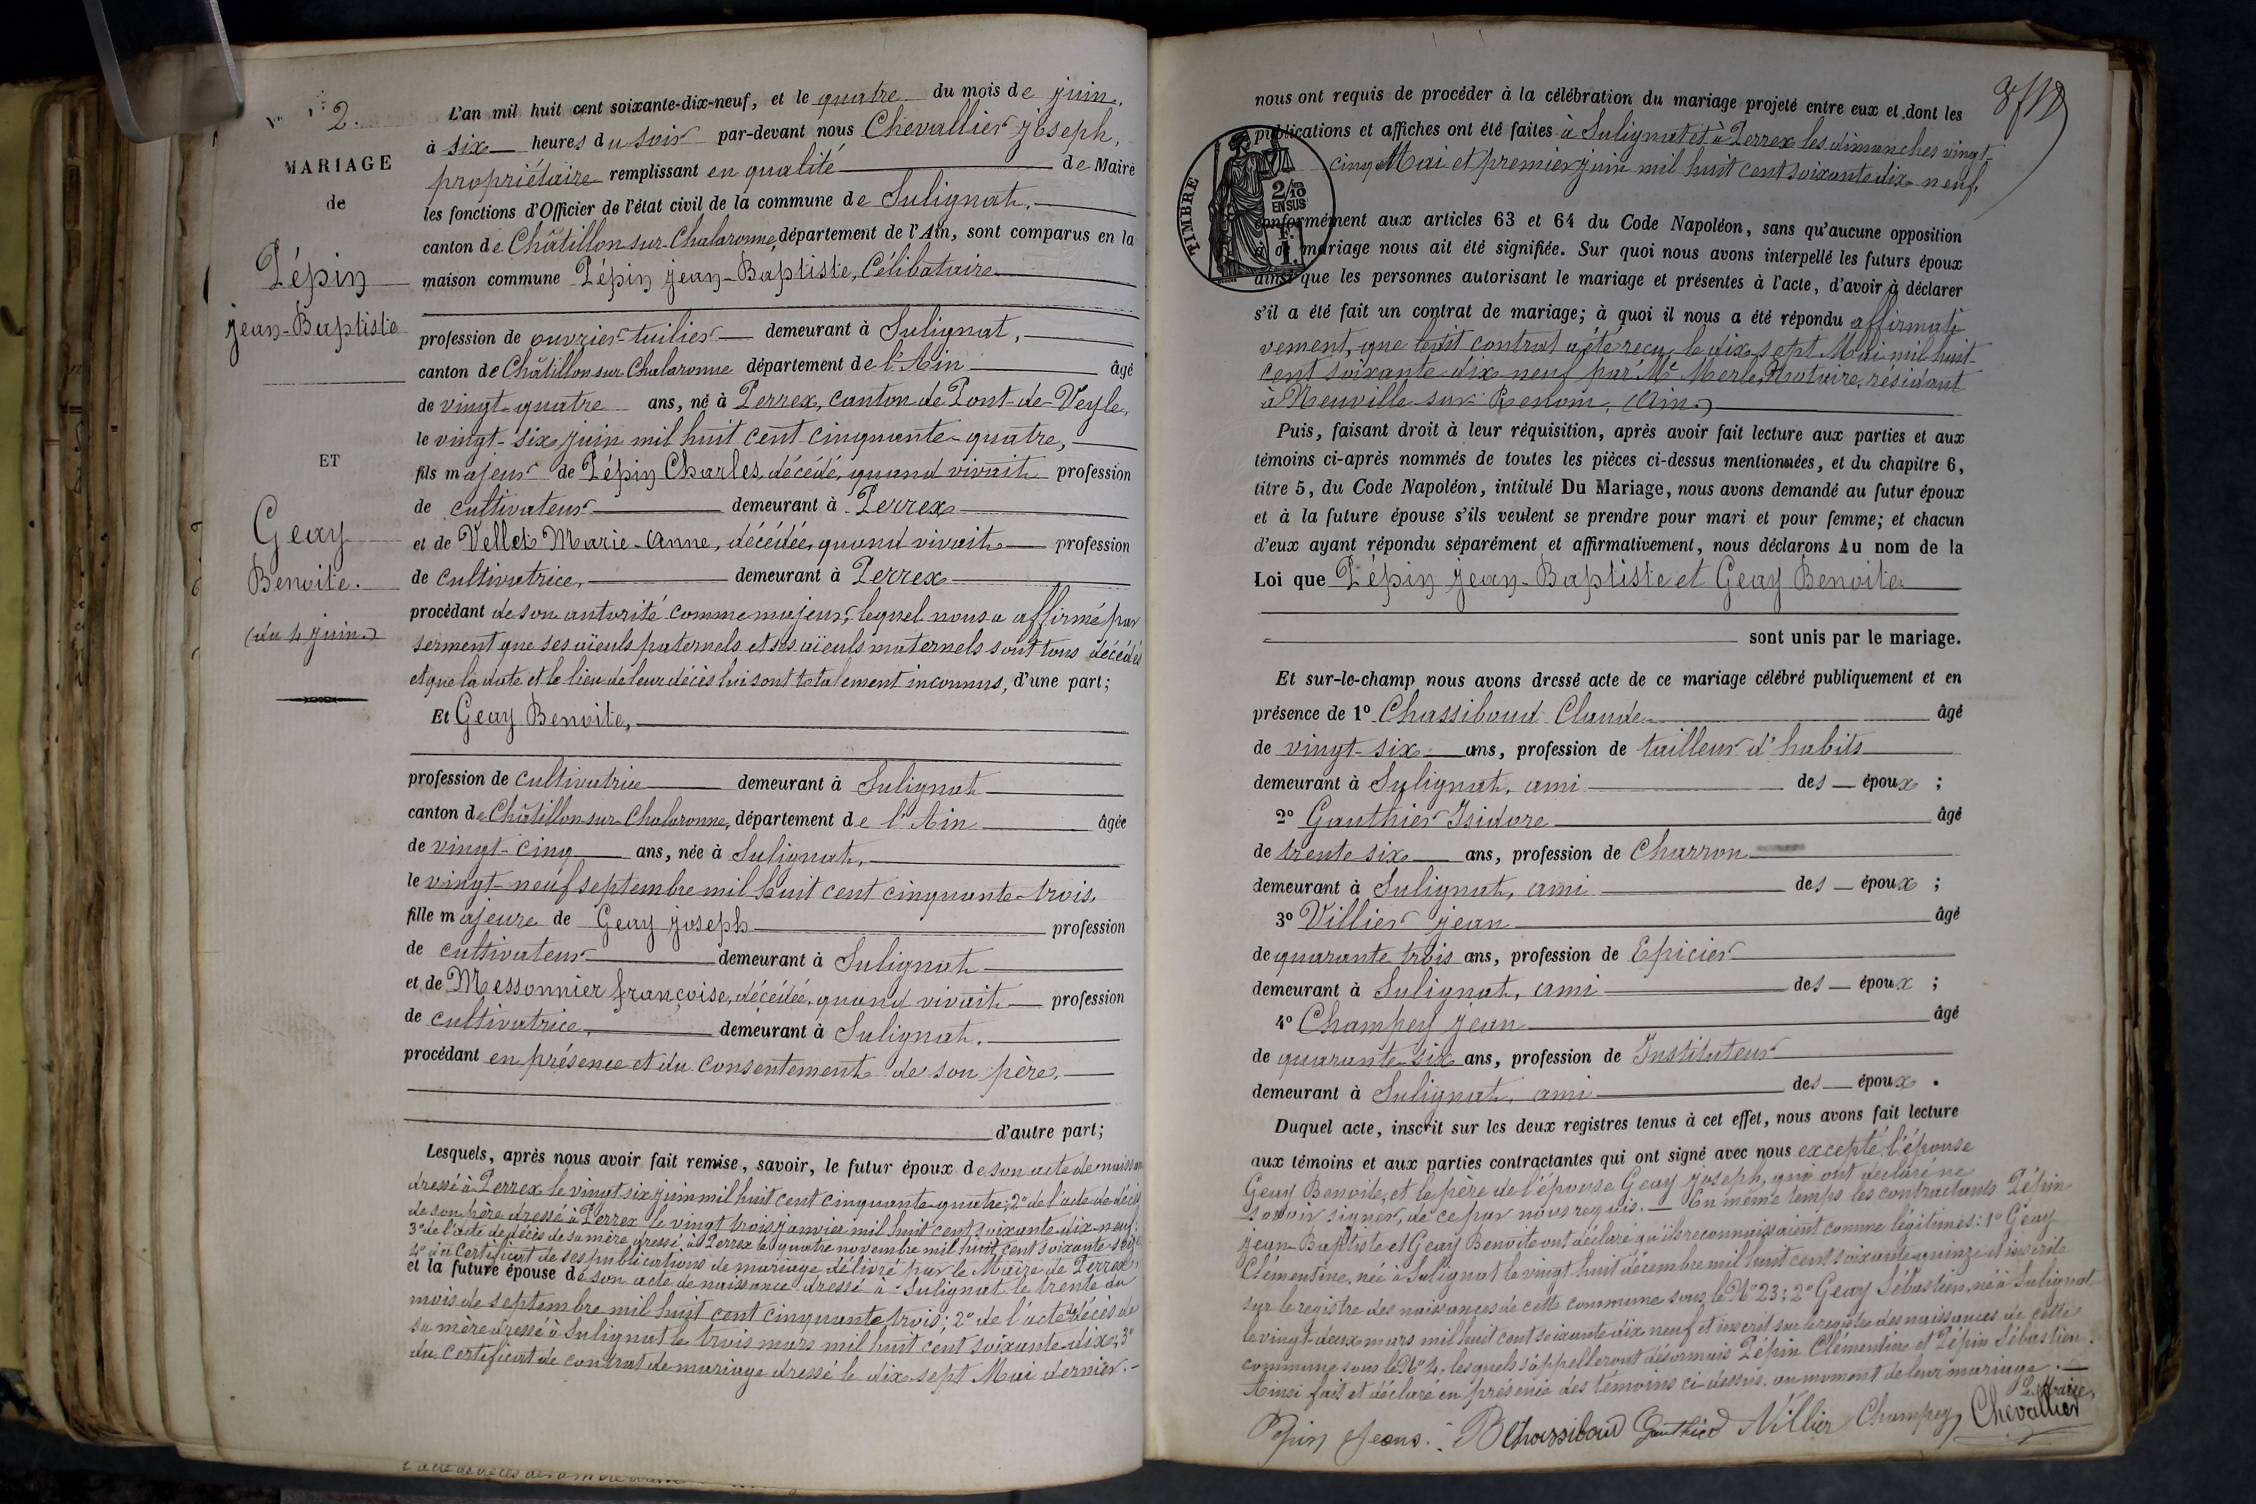 N° 2.
MARIAGE
de
Pépin
jean-Baptiste
ET
Geay
Benoite.
(du 4 juin.)
L'an mil huit cent soixante-dix-neuf, et le quatre du mois de juin,
à six heures du soir par-devant nous Chevallier joseph,
propriétaire remplissant en qualité de Maire
les fonctions d'Officier de l'état civil de la commune de Sulignat,
canton de Châtillon-sur-Chalaronne, département de l'Ain, sont comparus en la
maison commune Pépin jean-Baptiste, Célibataire
profession de ouvrier-tuilier demeurant à Sulignat,
canton de Châtillon sur Chalaronne département de l'Ain âgé
de vingt-quatre ans, né à Perrex, canton de Pont-de-Veyle,
le vingt-six juin mil huit cent cinquante-quatre,
fils majeur de Pépin Charles, décédé, quand vivait profession
de cultivateur demeurant à Perrex
et de Vellet Marie-Anne, décédée, quand vivait profession
de cultivatrice, demeurant à Perrex
procédant de son autorité comme majeur, lequel nous a affirmé par
serment que ses aïeuls paternels et ses aïeuls maternels sont tous décédés
et que la date et le lieu de leur décès lui sont totalement inconnus, d'une part;
Et Geay Benoite,
profession de cultivatrice demeurant à Sulignat
canton de Châtillon sur Chalaronne, département de l'Ain âgée
de vingt-cinq ans, née à Sulignat,
le vingt-neuf septembre mil huit cent cinquante-trois,
fille majeure de Geay joseph profession
de cultivateur demeurant à Sulignat
et de Messonnier françoise, décédée, quand vivait profession
de cultivatrice, demeurant à Sulignat.
procédant en présence et du consentement de son père,
d'autre part;
Lesquels, après nous avoir fait remise, savoir, le futur époux de son acte de naissan
dressé à Perrex le vingt six juin mil huit cent cinquante-quatre; 2° de l'acte de décès
de son père dressé à Perrex le vingt trois janvier mil huit cent soixante-dix-neuf;
3° de l'acte de décès de sa mère, dressé à Perrex le quatre novembre mil huit cent soixante-seize
4° du Certificat de ses publications de mariage délivré par le Maire de Perrex
et la future épouse de son acte de naissance dressé à Sulignat le trente du
mois de septembre mil huit cent cinquante trois; 2° de l'acte de décès de
sa mère dressé à Sulignat le trois mars mil huit cent soixante-dix; 3°
du Certificat de contrat de mariage dressé le dix sept Mai dernier.
nous ont requis de procéder à la célébration du mariage projeté entre eux et dont les
publications et affiches ont été faites à Sulignat et à Perrex les dimanches vingt-
cinq Mai et premier juin mil huit cent soixante dix-neuf,
TIMBRE
2/10
EN SUS
conformément aux articles 63 et 64 du Code Napoléon, sans qu'aucune opposition
mariage nous ait été signifiée. Sur quoi nous avons interpellé les futurs époux
ainsi que les personnes autorisant le mariage et présentes à l'acte, d'avoir à déclarer
s'il a été fait un contrat de mariage; à quoi il nous a été répondu affirmati
vement, que ledit contrat a été reçu le dix-sept Mai mil huit-
cent soixante dix neuf par Me Merle, Notaire, résidant
à Neuville sur Renom, (Ain.)
Puis, faisant droit à leur réquisition, après avoir fait lecture aux parties et aux
témoins ci-après nommés de toutes les pièces ci-dessus mentionnées, et du chapitre 6,
titre 5, du Code Napoléon, intitulé Du Mariage, nous avons demandé au futur époux
et à la future épouse s'ils veulent se prendre pour mari et pour femme; et chacun
d'eux ayant répondu séparément et affirmativement, nous déclarons Au nom de la
Loi que Pépin jean-Baptiste et Geay Benoite
sont unis par le mariage.
Et sur-le-champ nous avons dressé acte de ce mariage célébré publiquement et en
présence de 1° Chassiboud Claude âgé
de vingt-six ans, profession de tailleur d'habits
demeurant à Sulignat, ami des époux ;
2° Gauthier Isidore âgé
de trente six ans, profession de Charron
demeurant à Sulignat, ami des époux ;
3° Villier jean âgé
de quarante trois ans, profession de Epicier
demeurant à Sulignat, ami des époux ;
4° Champey jean âgé
de quarante-six ans, profession de Instituteur
demeurant à Sulignat, ami des époux .
Duquel acte, inscrit sur les deux registres tenus à cet effet, nous avons fait lecture
aux témoins et aux parties contractantes qui ont signé avec nous excepté l'épouse
Geay Benoite, et le père de l'épouse Geay joseph, qui ont déclaré ne
savoir signer, de ce par nous requis. — En même temps les contractants Pépin
jean-Baptiste et Geay Benoite ont déclaré qu'ils reconnaissaient comme légitimes: 1° Geay
Clémentine, née à Sulignat le vingt huit décembre mil huit cent soixante-quinze et inscrite
sur le registre des naissances de cette commune sous le N° 23; 2° Geay Sébastien, né à Sulignat
le vingt-deux mars mil huit cent soixante dix neuf et inscrit sur le registre des naissances de cette
commune sous le N° 4, lesquels s'appelleront désormais Pépin Clémentine et Pépin Sébastien.
Ainsi fait et déclaré en présence des témoins ci-dessus, au moment de leur mariage.
Le Maire,
Pépin Jeans. Chassiboud Gauthier Villier Champey Chevallier